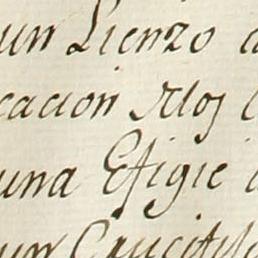 un Lienzo
cacion Rloj
una Efigie
un Crucifi